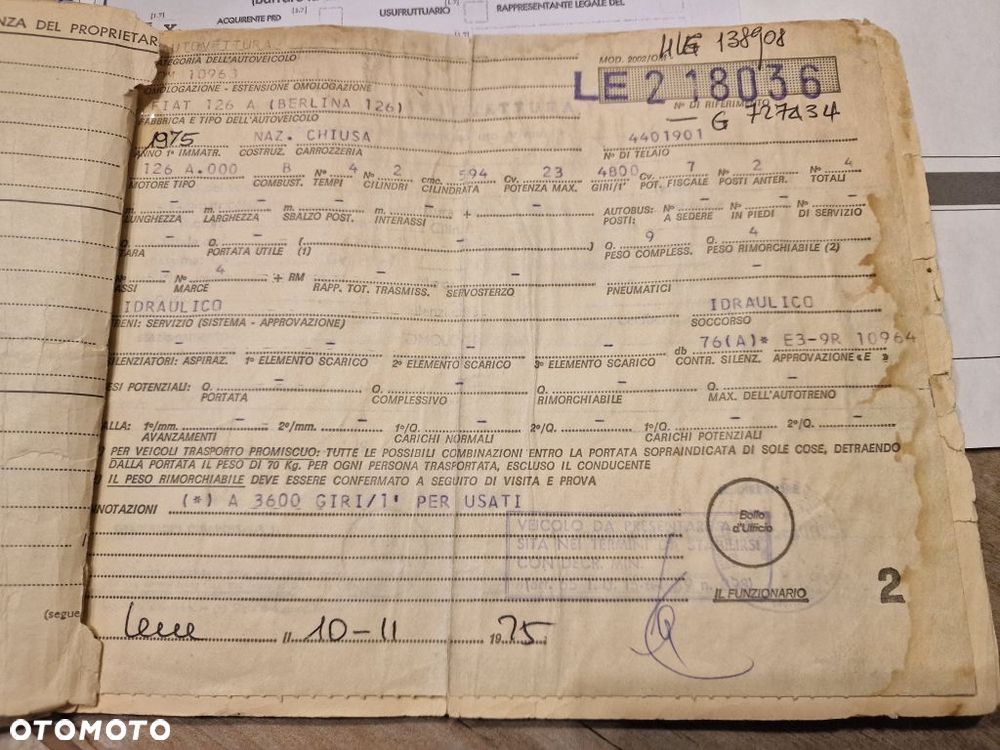 ACQUIRENTE PRD
USUFRUTTUARIO
RAPPRESENTANTE LEGALE DEL
NZA DEL PROPRIETAR
AUTOVETTURA
CATEGORIA DELL'AUTOVEICOLO
MOD. 2002/
LE 138908
10963
LE 2 18036
OMOLOGAZIONE - ESTENSIONE OMOLOGAZIONE
Nº DI RIFERIMENTO
FIAT 126 A (BERLINA 126)
G 727434
FABBRICA E TIPO DELL'AUTOVEICOLO
1975 NAZ. CHIUSA
4401901
ANNO 1ª IMMATR. COSTRUZ. CARROZZERIA
Nº DI TELAIO
126 A.000 B Nº 4 Nº 2 cmc. 594 Cv. 23 4800 Cv. 7 Nº 2 Nº 4
MOTORE TIPO COMBUST. TEMPI CILINDRI CILINDRATA POTENZA MAX. GIRI/1' POT. FISCALE POSTI ANTER. TOTALI
m. - m. - m. - + - AUTOBUS: Nº - Nº - Nº -
LUNGHEZZA LARGHEZZA SBALZO POST. INTERASSI POSTI: A SEDERE IN PIEDI DI SERVIZIO
Q. - Q. - ( - ) Q. 9 Q. 4
TARA PORTATA UTILE (1) PESO COMPLESS. PESO RIMORCHIABILE (2)
- Nº 4 + RM - - -
ASSI MARCE RAPP. TOT. TRASMISS. SERVOSTERZO PNEUMATICI
IDRAULICO IDRAULICO
FRENI: SERVIZIO (SISTEMA - APPROVAZIONE) SOCCORSO
- - - - db 76(A)* E3-9R 10964
SILENZIATORI: ASPIRAZ. 1º ELEMENTO SCARICO 2º ELEMENTO SCARICO 3º ELEMENTO SCARICO CONTR. SILENZ. APPROVAZIONE «E»
PESI POTENZIALI: Q. - Q. - Q. - Q. -
PORTATA COMPLESSIVO RIMORCHIABILE MAX. DELL'AUTOTRENO
BALLA: 1º/mm. - 2º/mm. - 1º/Q. - 2º/Q. - 1º/Q. - 2º/Q. -
AVANZAMENTI CARICHI NORMALI CARICHI POTENZIALI
) PER VEICOLI TRASPORTO PROMISCUO: TUTTE LE POSSIBILI COMBINAZIONI ENTRO LA PORTATA SOPRAINDICATA DI SOLE COSE, DETRAENDO
DALLA PORTATA IL PESO DI 70 Kg. PER OGNI PERSONA TRASPORTATA, ESCLUSO IL CONDUCENTE
) IL PESO RIMORCHIABILE DEVE ESSERE CONFERMATO A SEGUITO DI VISITA E PROVA
ANNOTAZIONI (*) A 3600 GIRI/1' PER USATI
VEICOLO DA PRESENTARE A
SITA NEI TERMINI DA STABILIRSI
CON DECR. MIN.
Bollo
d'Ufficio
IL FUNZIONARIO
2
(segue
Lecce il 10-11 1975
OTOMOTO